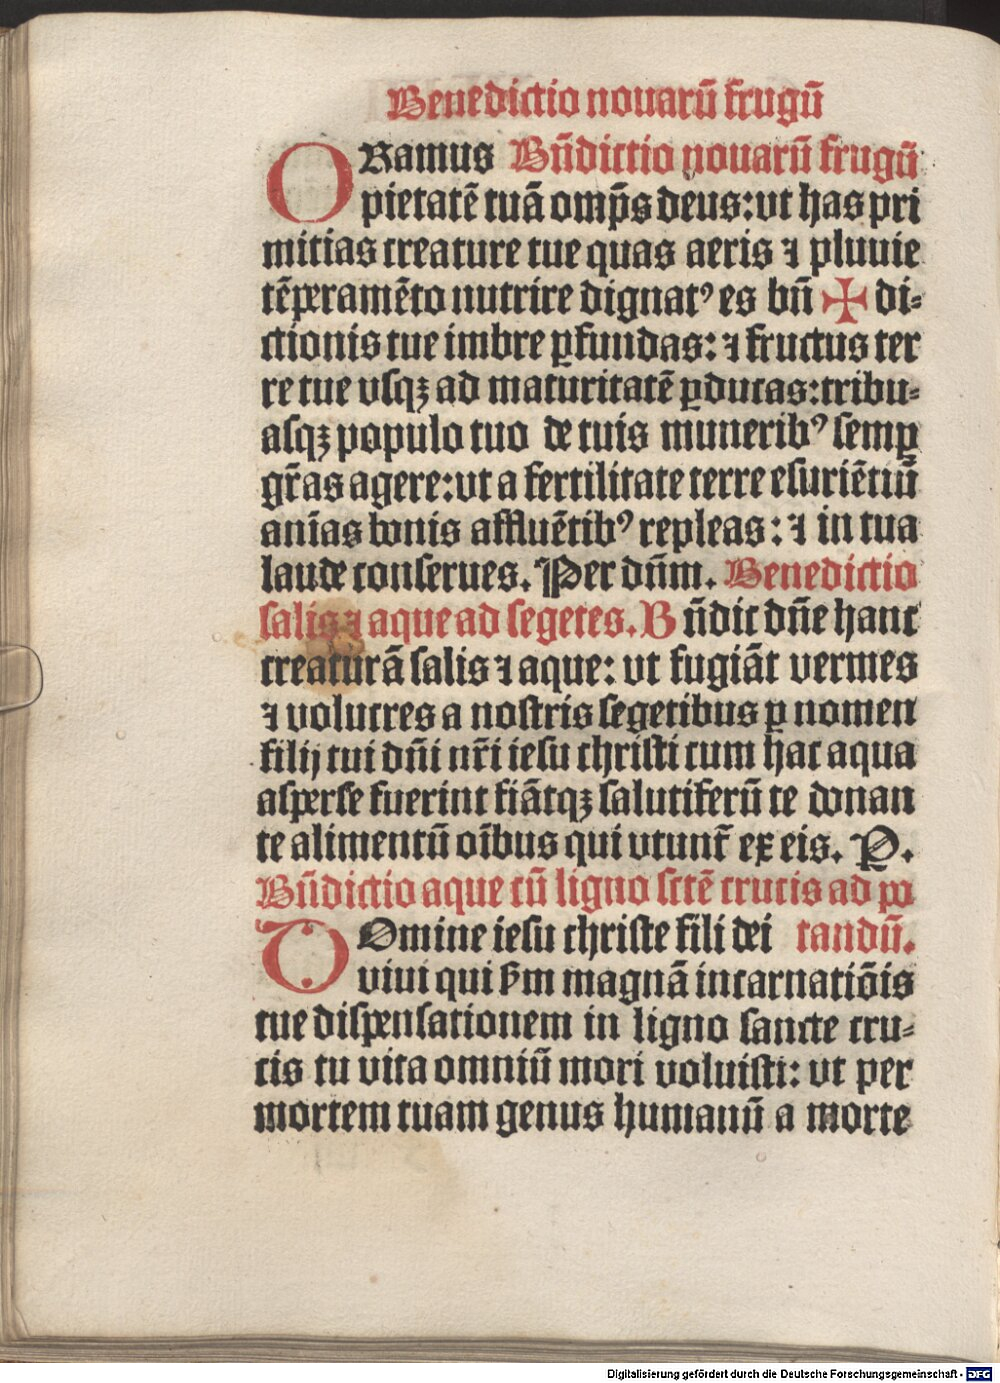 Benedictio nouarū frugū
ORamus Bn̄dictio nouarū frugū
pietatē tuā omp̄s deus: vt has pri
mitias creature tue quas aeris ⁊ pluuie
tēperamēto nutrire dignatꝰ es bn̄ ✠ di⸗
ctionis tue imbre ꝑfundas: ⁊ fructus ter
re tue vsqꝫ ad maturitatē ꝑducas: tribu⸗
asqꝫ populo tuo de tuis muneribꝰ semꝑ
gr̄as agere: vt a fertilitate terre esuriētiū
anīas bonis affluētibꝰ repleas: ⁊ in tua
laude conserues. Per dn̄m. Benedictio
salis ⁊ aque ad segetes. B n̄dic dn̄e hanc
creaturā salis ⁊ aque: vt fugiāt vermes
⁊ volucres a nostris segetibus ꝑ nomen
filij tui dn̄i nr̄i iesu christi cum hac aqua
asperse fuerint fiātqꝫ salutiferū te donan
te alimentū oībus qui vtunt᷑ ex eis. P.
Bn̄dictio aque cū ligno sctē crucis ad po
DOmine iesu christe fili dei tandū.
viui qui ẞm magnā incarnatiōis
tue dispensationem in ligno sancte cru⸗
cis tu vita omniū mori voluisti: vt per
mortem tuam genus humanū a morte
Digitalisierung gefördert durch die Deutsche Forschungsgemeinschaft - DFG